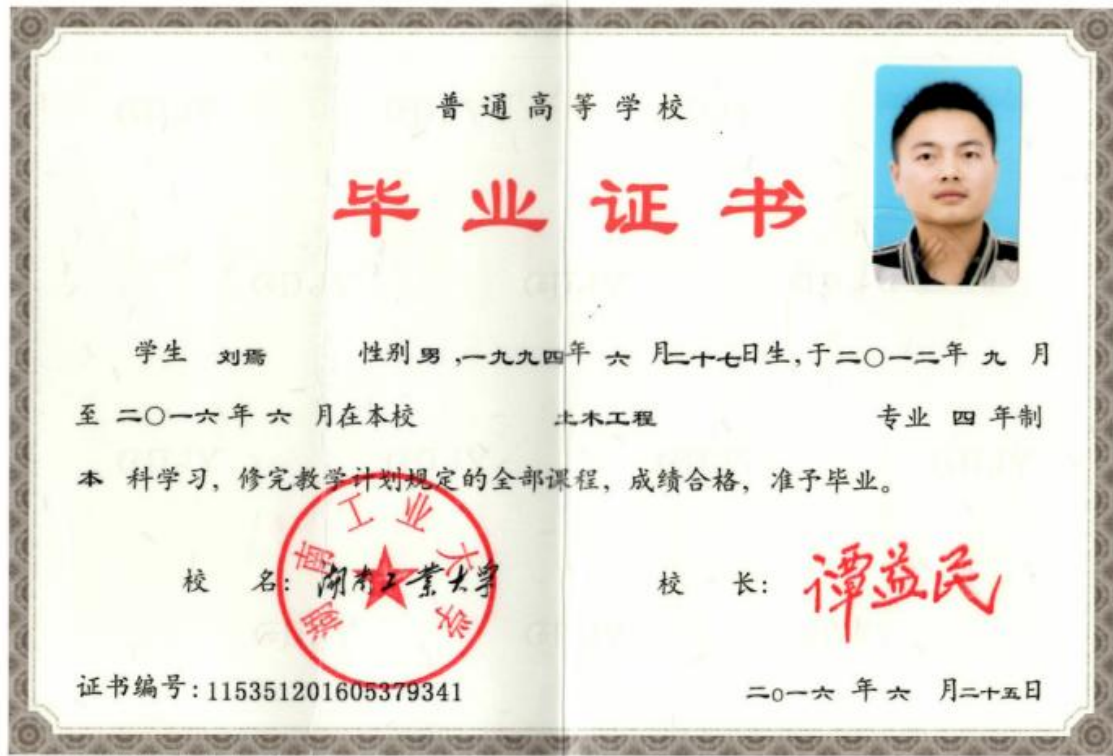 普通高等学校
毕业证书
学生 刘焉 性别男,一九九四年 六 月二十七日生,于二〇一二年 九 月
至 二〇一六年 六 月在本校 土木工程 专业 四 年制
本 科学习，修完教学计划规定的全部课程，成绩合格，准予毕业。
校 名: 湖南工業大学 校 长: 谭益民
湖南工业大学
证书编号:115351201605379341 二〇一六 年 六 月二十五日